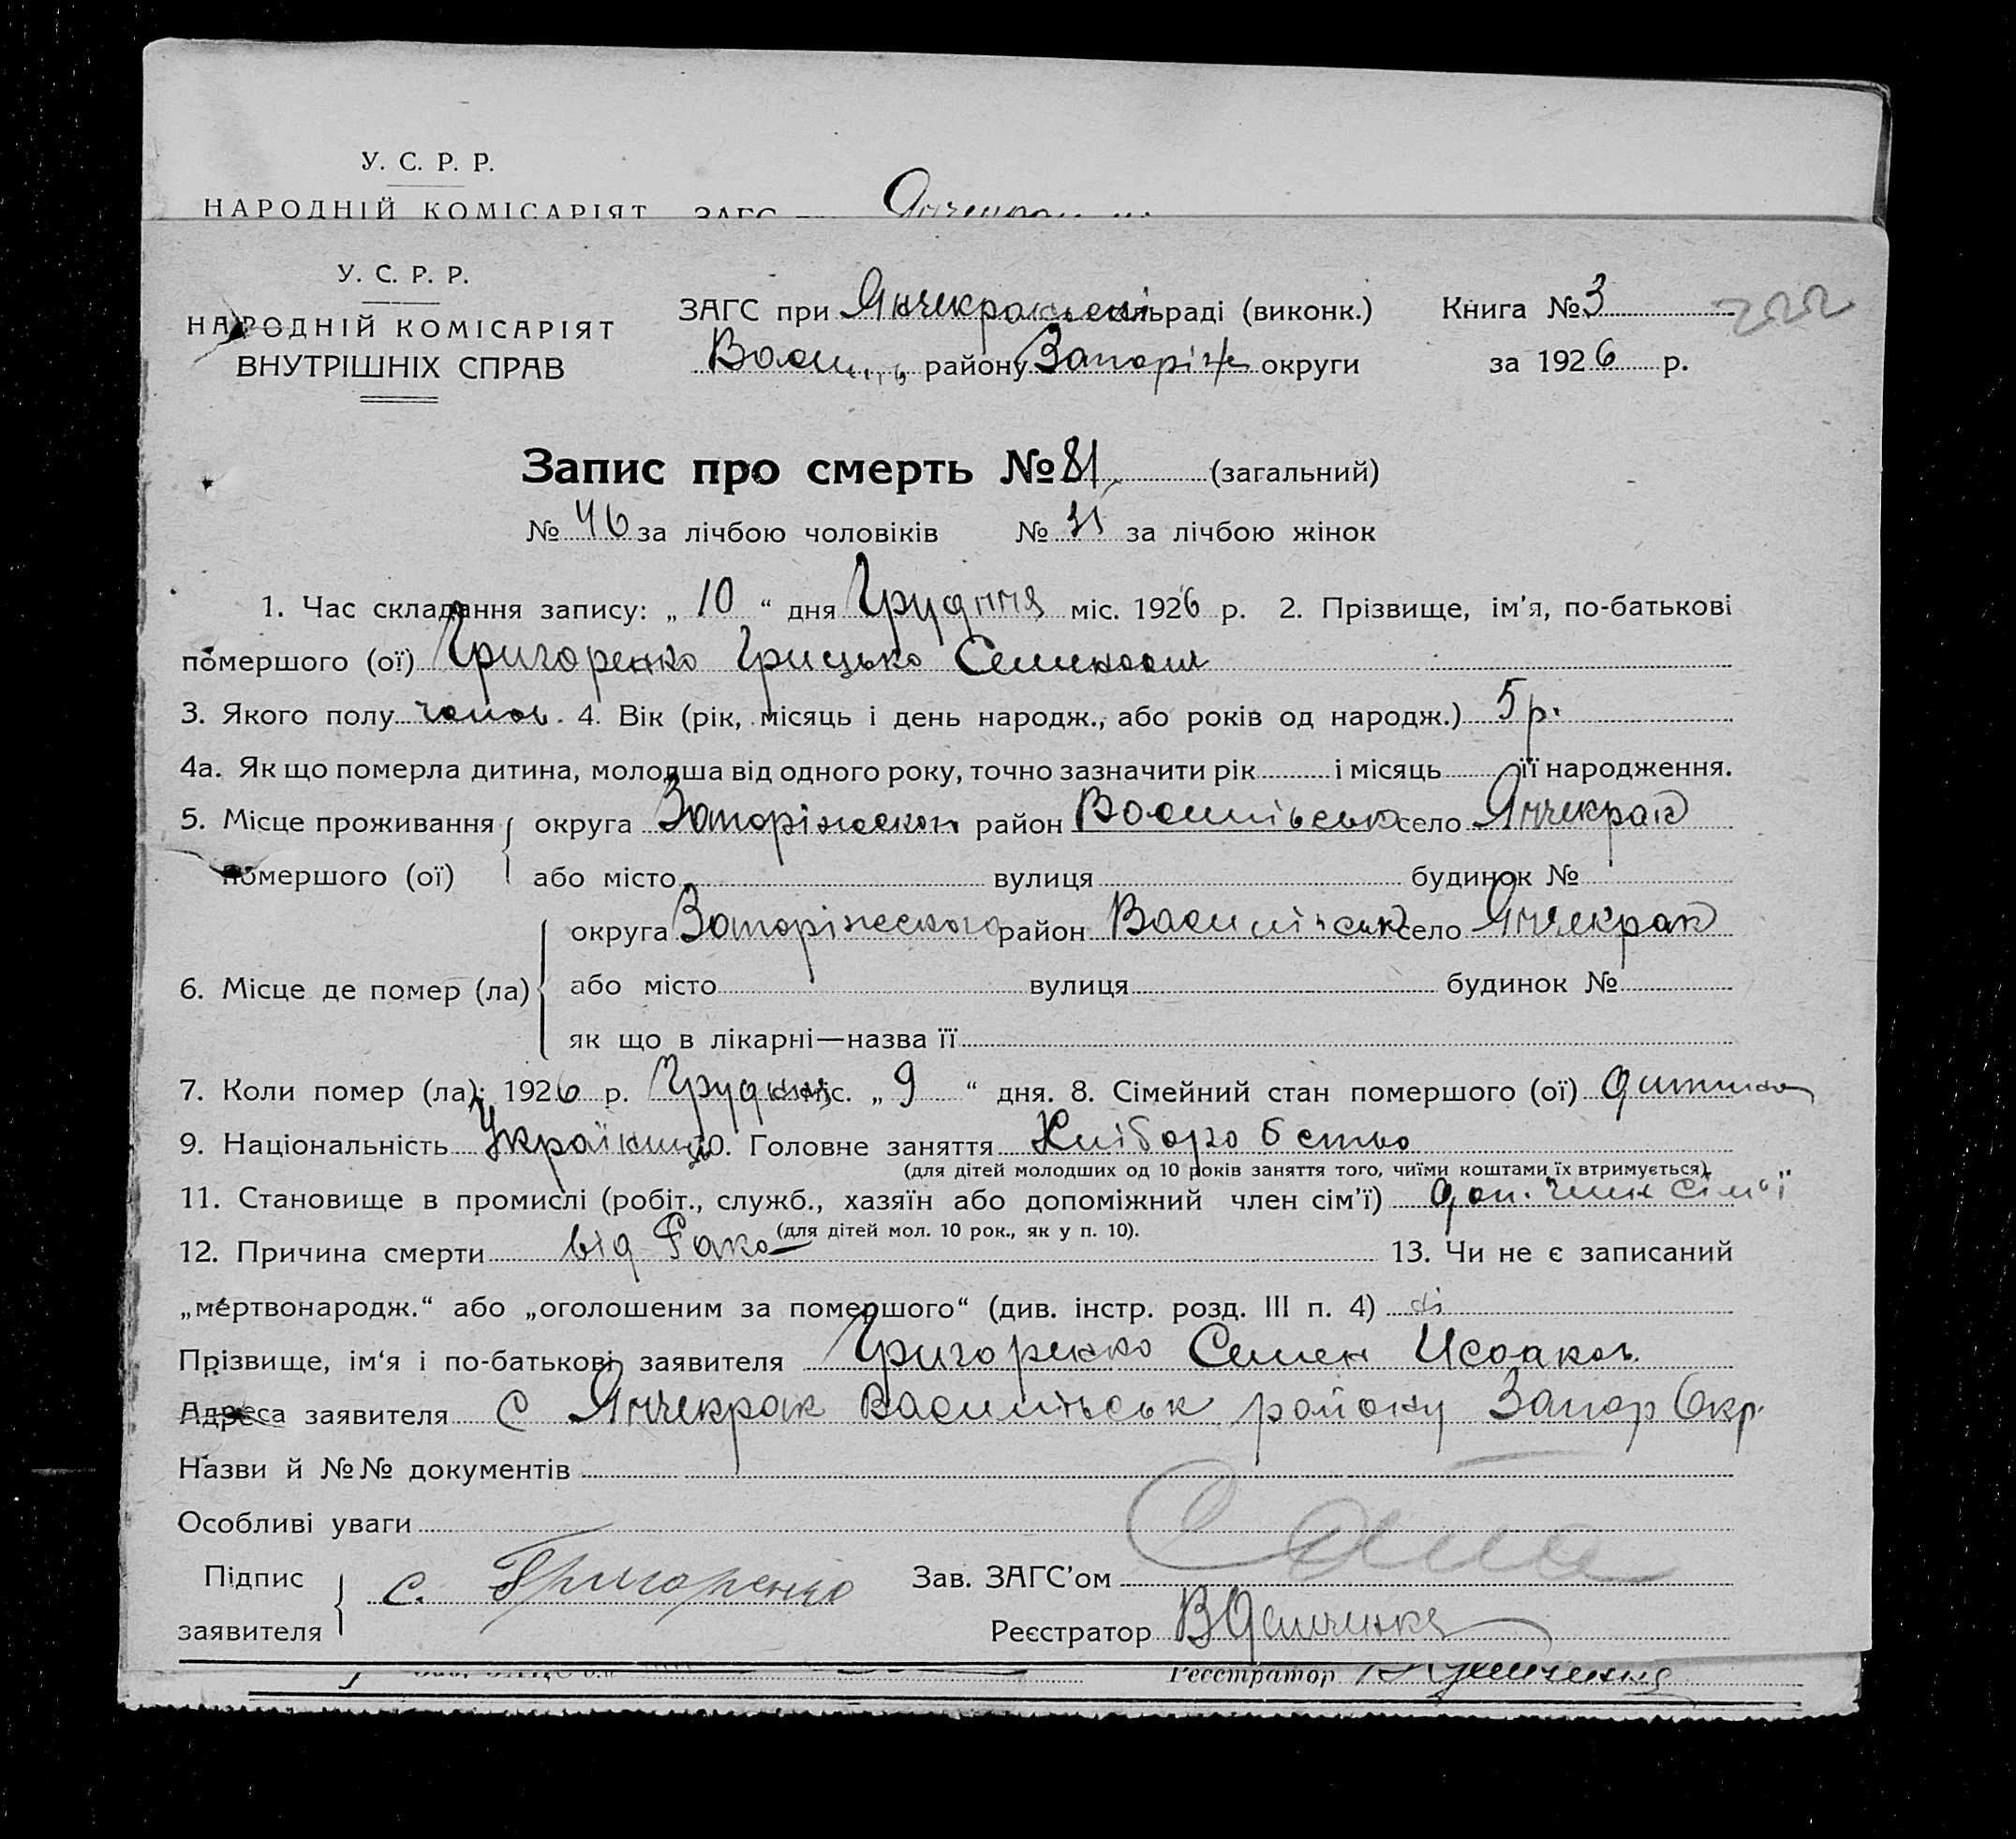 У. С. Р. Р.
НАРОДНІЙ КОМІСАРІЯТ ЗАГС
У. С. Р. Р.
НАРОДНІЙ КОМІСАРІЯТ
ВНУТРІШНІХ СПРАВ
ЗАГС при Янчекракські сільраді (виконк.) Книга № 3 222
Василів району Запоріж округи за 1926 р.
Запис про смерть № 81 (загальний)
№ 46 за лічбою чоловіків № за лічбою жінок
1. Час складання запису: „ 10 “ дня Грудння міс. 1926 р. 2. Прізвище, ім'я, по-батькові
помершого (ої) Григоренко Грицько Семенович
3. Якого полу чолов. 4. Вік (рік, місяць і день народж., або років од народж.) 5 р.
4а. Як що померла дитина, молодша від одного року, точно зазначити рік і місяць її народження.
5. Місце проживання округа Запоріжською район Василівськ село Янчекрак
помершого (ої) або місто вулиця будинок №
округа Запоріжського район Василівськ село Янчекрак
6. Місце де помер (ла) або місто вулиця будинок №
як що в лікарні—назва її
7. Коли помер (ла): 1926 р. Грудня міс. „ 9 “ дня. 8. Сімейний стан помершого (ої) дитина
9. Національність Українець 10. Головне заняття Хліборобство
(для дітей молодших од 10 років заняття того, чиїми коштами їх втримується)
11. Становище в промислі (робіт., служб., хазяїн або допоміжний член сім'ї) доп. член сім'ї
(для дітей мол. 10 рок., як у п. 10).
12. Причина смерти від Рака 13. Чи не є записаний
„мертвонародж.“ або „оголошеним за помершого“ (див. інстр. розд. III п. 4) ні
Прізвище, ім'я і по-батькові заявителя Григоренко Семен Исааков.
Адреса заявителя С Янчекрак Васильівськ району Запор Окр.
Назви й №№ документів
Особливі уваги
Підпис заявителя С. Григоренко Зав. ЗАГС'ом
Реєстратор
Реєстратор